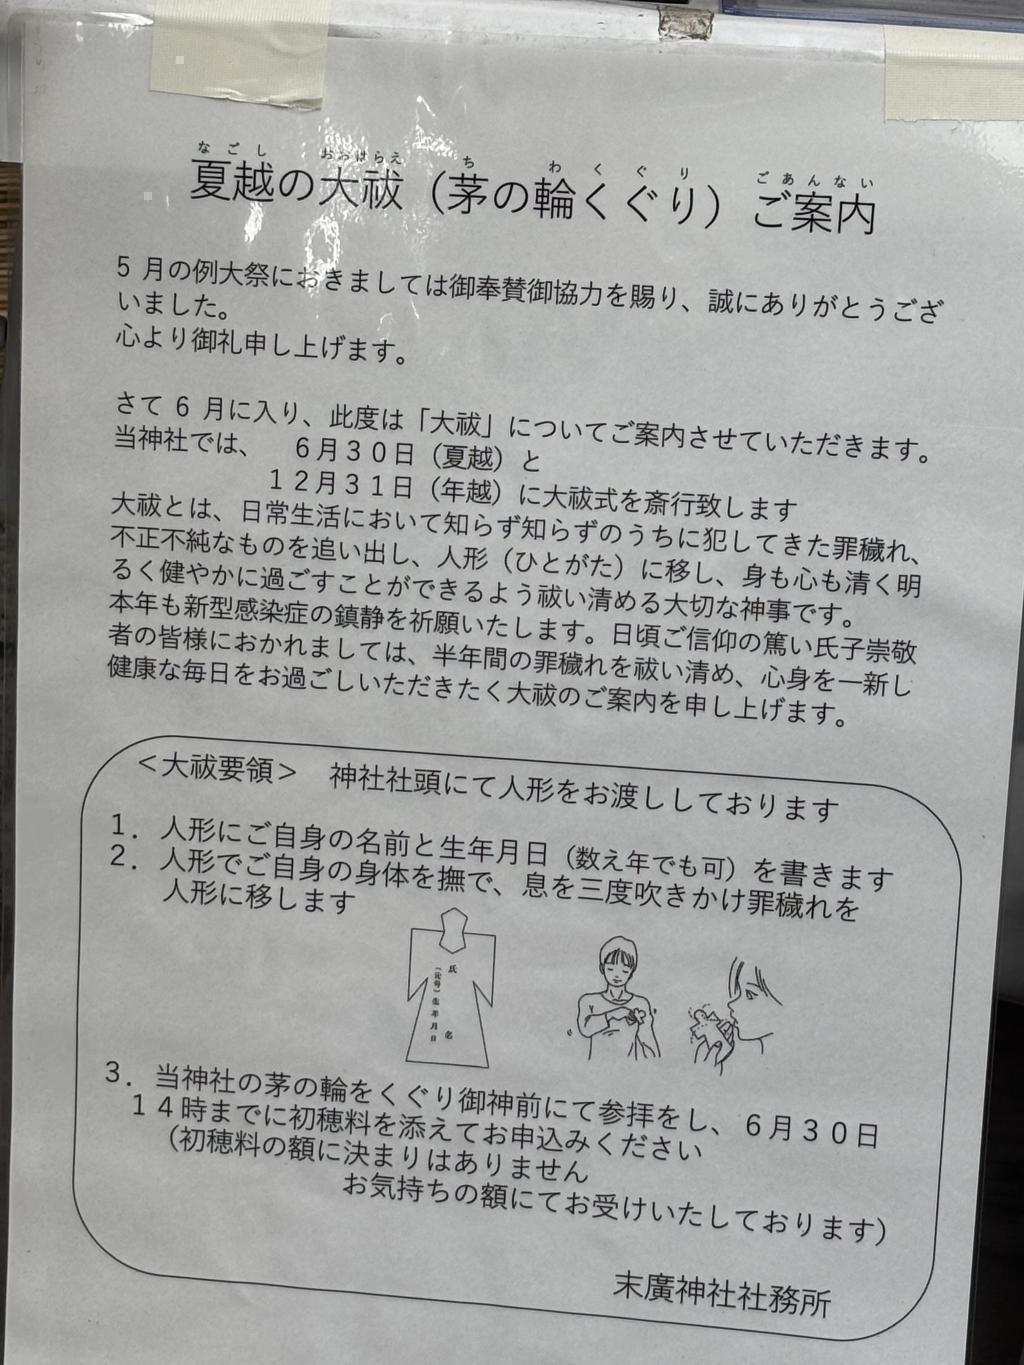 なごし おおはらえ ち わくぐり ごあんない
夏越の大祓（茅の輪くぐり）ご案内
5 月の例大祭におきましては御奉賛御協力を賜り、誠にありがとうござ
いました。
心より御礼申し上げます。
さて 6 月に入り、此度は「大祓」についてご案内させていただきます。
当神社では、 6月30日（夏越）と
12月31日（年越）に大祓式を斎行致します
大祓とは、日常生活において知らず知らずのうちに犯してきた罪穢れ、
不正不純なものを追い出し、人形（ひとがた）に移し、身も心も清く明
るく健やかに過ごすことができるよう祓い清める大切な神事です。
本年も新型感染症の鎮静を祈願いたします。日頃ご信仰の篤い氏子崇敬
者の皆様におかれましては、半年間の罪穢れを祓い清め、心身を一新し
健康な毎日をお過ごしいただきたく大祓のご案内を申し上げます。
＜大祓要領＞ 神社社頭にて人形をお渡ししております
1. 人形にご自身の名前と生年月日（数え年でも可）を書きます
2. 人形でご自身の身体を撫で、息を三度吹きかけ罪穢れを
人形に移します
氏 名
（元号）生年月日
3. 当神社の茅の輪をくぐり御神前にて参拝をし、6月30日
14時までに初穂料を添えてお申込みください
（初穂料の額に決まりはありません
お気持ちの額にてお受けいたしております）
末廣神社社務所